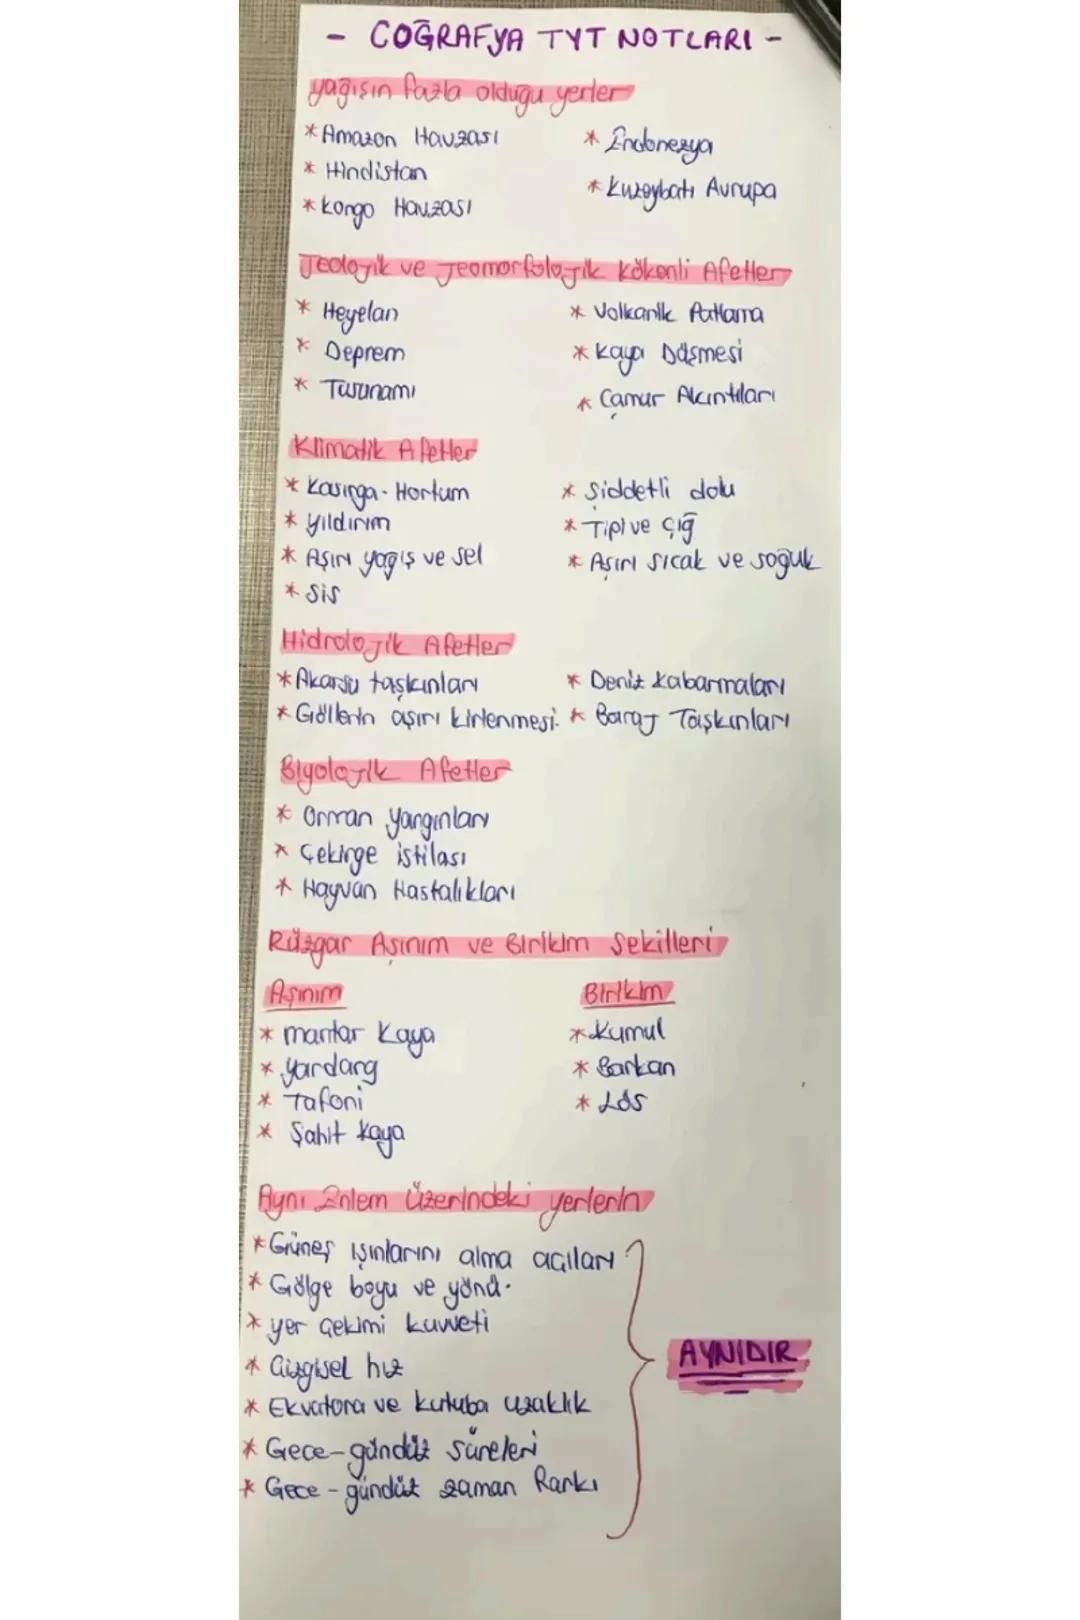 - COĞRAFYA TYT NOTLARI -
yağışın fazla olduğu yerler
* Amazon Havzası
* Hindistan
* Kongo Havzası
* Endonezya
* Kuzeybatı Avrupa
Jeolojik ve Jeomorfolojik Kökenli Afetler
* Heyelan
* Deprem
* Tusunamı
* Volkanik Patlama
* Kaya Düşmesi
* Çamur Akıntıları
Klimatik Afetler
* Kasırga - Hortum
* Yıldırım
* Aşırı yağış ve sel
* Sis
* Şiddetli dolu
* Tipi ve Çığ
* Aşırı sıcak ve soğuk
Hidrolojik Afetler
* Akarsu taşkınları
* Göllerin aşırı kirlenmesi.
* Deniz Kabarmaları
* Baraj Taşkınları
Biyolojik Afetler
* Orman yangınları
* Çekirge istilası
* Hayvan Hastalıkları
Rüzgar Aşınım ve Birikim Şekilleri
Aşınım
* mantar Kaya
* Yardang
* Tafoni
* Şahit Kaya
Birikim
* Kumul
* Barkan
* Lös
Aynı Enlem Üzerindeki yerlerin
* Güneş ışınlarını alma açıları
* Gölge boyu ve yönü.
* yer çekimi kuvveti
* Çizgisel hız
* Ekvatora ve kutuba uzaklık
* Gece-gündüz süreleri
* Gece-gündüz zaman farkı
AYNIDIR